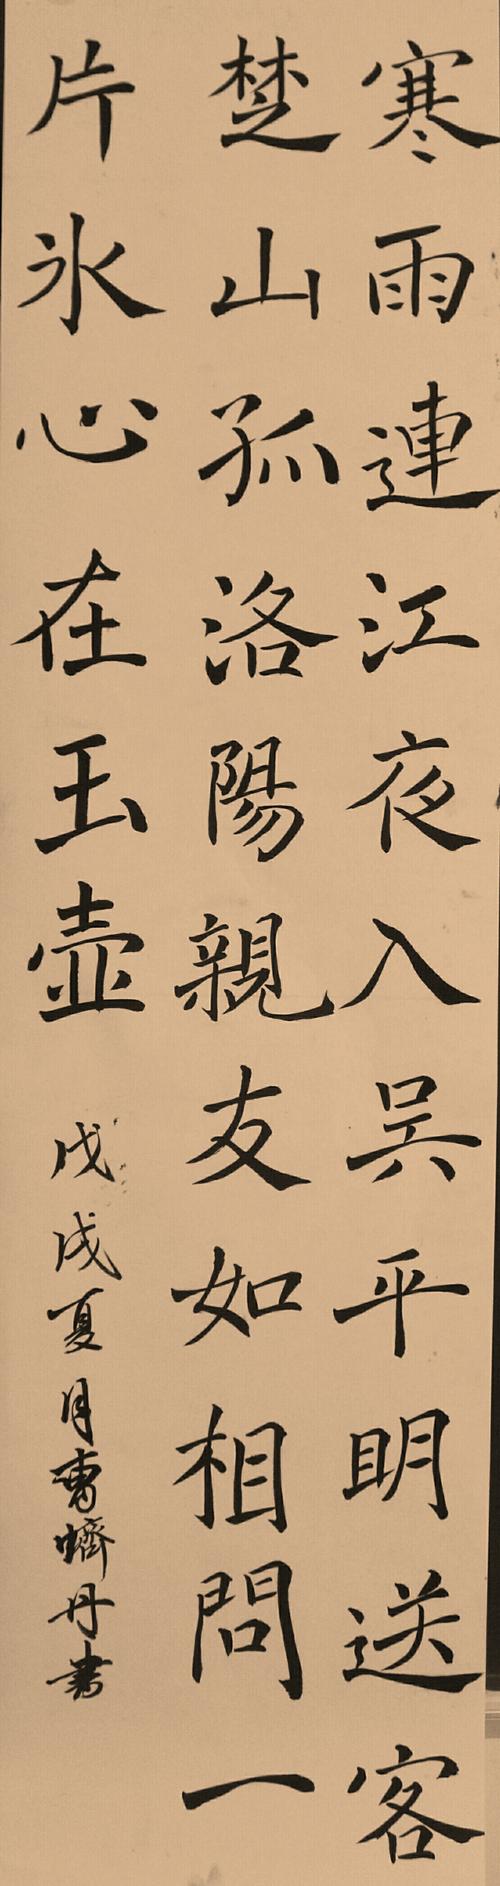 寒雨連江夜入吳平明送客
楚山孤洛陽親友如相問一
片氷心在玉壺
戊戌夏月曹蠐丹書